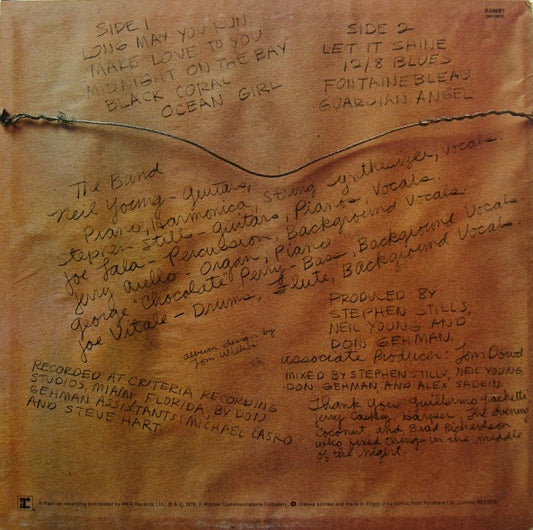 K54081
SIDE 1
LONG MAY YOU RUN
MAKE LOVE TO YOU
MIDNIGHT ON THE BAY
BLACK CORAL
OCEAN GIRL
SIDE 2
LET IT SHINE
12/8 BLUES
FONTAINEBLEAU
GUARDIAN ANGEL
The Band
Neil Young - Guitars,
Piano, Harmonica, String Synthesizer, Vocals.
Stephen Stills - Guitars, Piano, Vocals.
Joe Lala - Percussion, Background Vocals.
Jerry Aiello - Organ, Piano
George "Chocolate" Perry - Bass, Background Vocals.
Joe Vitale - Drums, Flute, Background Vocals.
album design by
Tom Wilkes
PRODUCED BY
STEPHEN STILLS,
NEIL YOUNG AND
DON GEHMAN.
Associate Producer: Tom Dowd
MIXED BY STEPHEN STILLS, NEIL YOUNG,
DON GEHMAN AND ALEX SADKIN.
RECORDED AT CRITERIA RECORDING
STUDIOS, MIAMI FLORIDA, BY DON
GEHMAN ASSISTANTS: MICHAEL LASKO
AND STEVE HART.
Thank You Guillermo Giachetti,
Jerry Caskey, Harper, The
Coconut, and Brad Richardson
who fixed things in the middle
of the night.
A Reprise recording distributed by WEA Records Ltd. ℗ & © 1976. A Warner Communications Company. Sleeve printed and made in England by